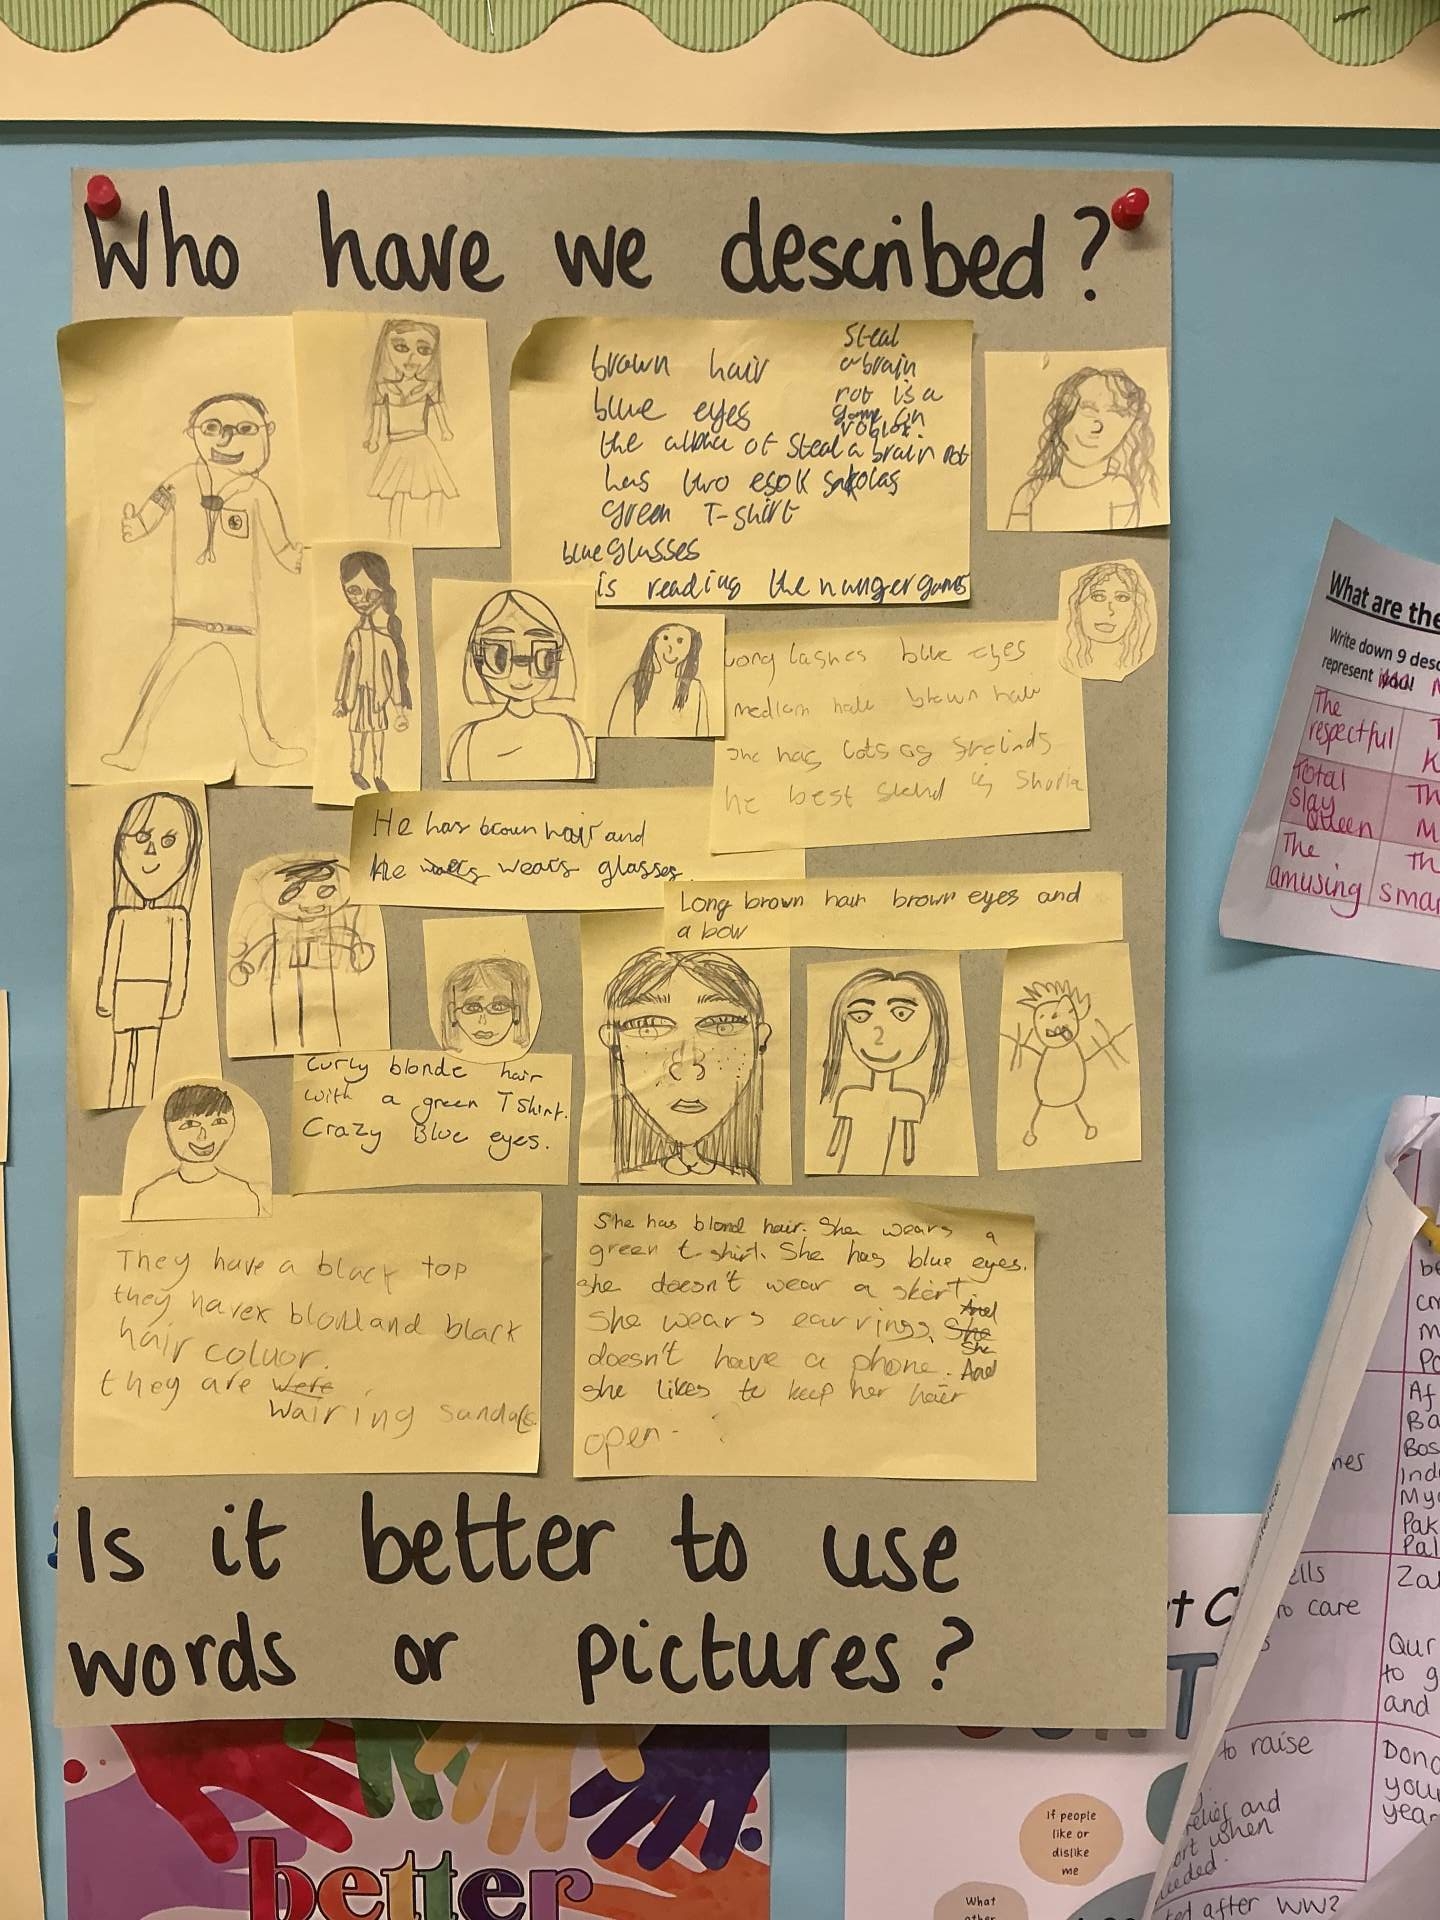 Who have we described?
brown hair
blue eyes
the alpha of Steal a brain rot
has two esok sakolas
green T-shirt
blue glasses
is reading the hunger games
Steal
a brain
rot is a
game on
roblox
long lashes blue eyes
medium hair brown hair
She has lots of
best is
He has brown hair and
He wears glasses.
Long brown hair brown eyes and
a bow
Curly blonde hair
with a green Tshirt.
Crazy Blue eyes.
They have a black top
they have black
hair coluor.
they are were
wairing sandals
She has blond hair. She wears a
green t-shirt. She has blue eyes.
she doesn't wear a skert.
She wears earrings. And She She
doesn't have a phone. And
she likes to keep her hair
open.
Is it better to use
words or pictures?
What are the
Write down 9
represent you!
The
respectful
Total
slay
Queen
The
amusing
smar
Af
Ba
Bos
Ind
My
Pak
Pal
nes
Za
ells
to care
Our
to g
and
to raise
relief and
ort when
eeded.
Dona
you
year
ted after WW2
If people
like or
dislike
me
What
other
better